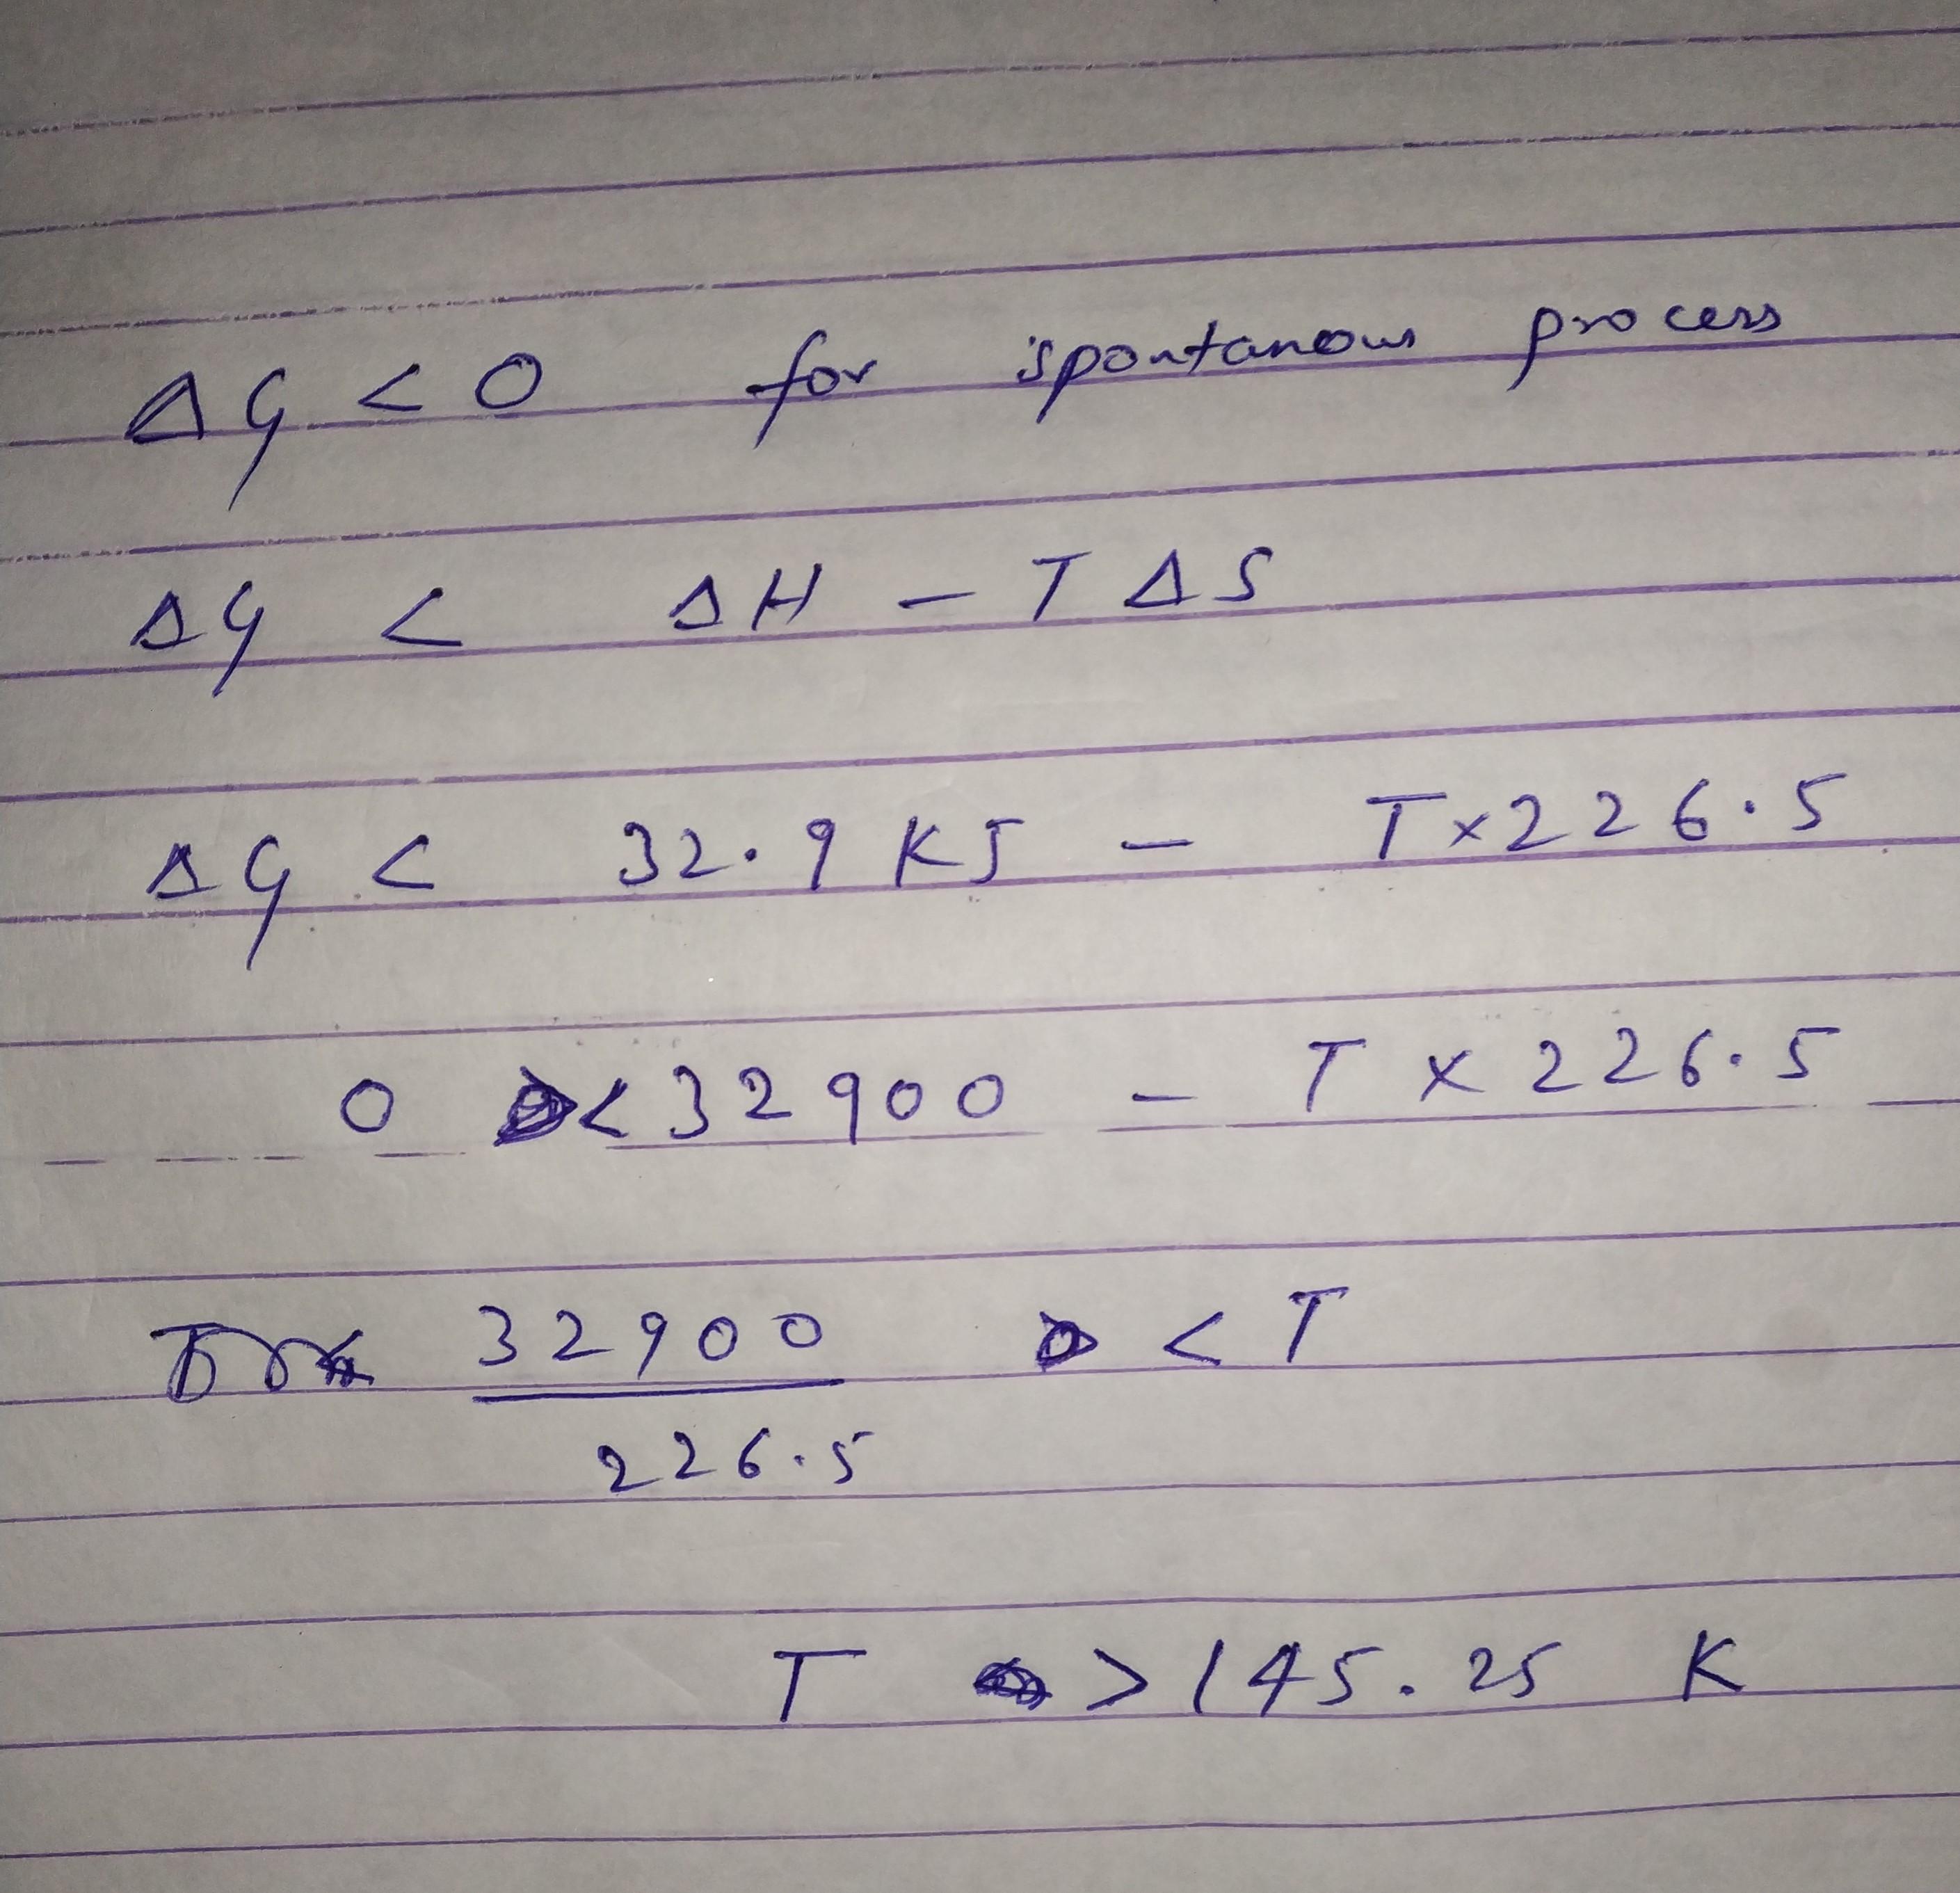 ΔG < 0 for spontaneous process
ΔG < ΔH - TΔS
ΔG < 32.9 KJ - T×226.5
0 < 32900 - T × 226.5
32900 / 226.5 < T
T > 145.25 K